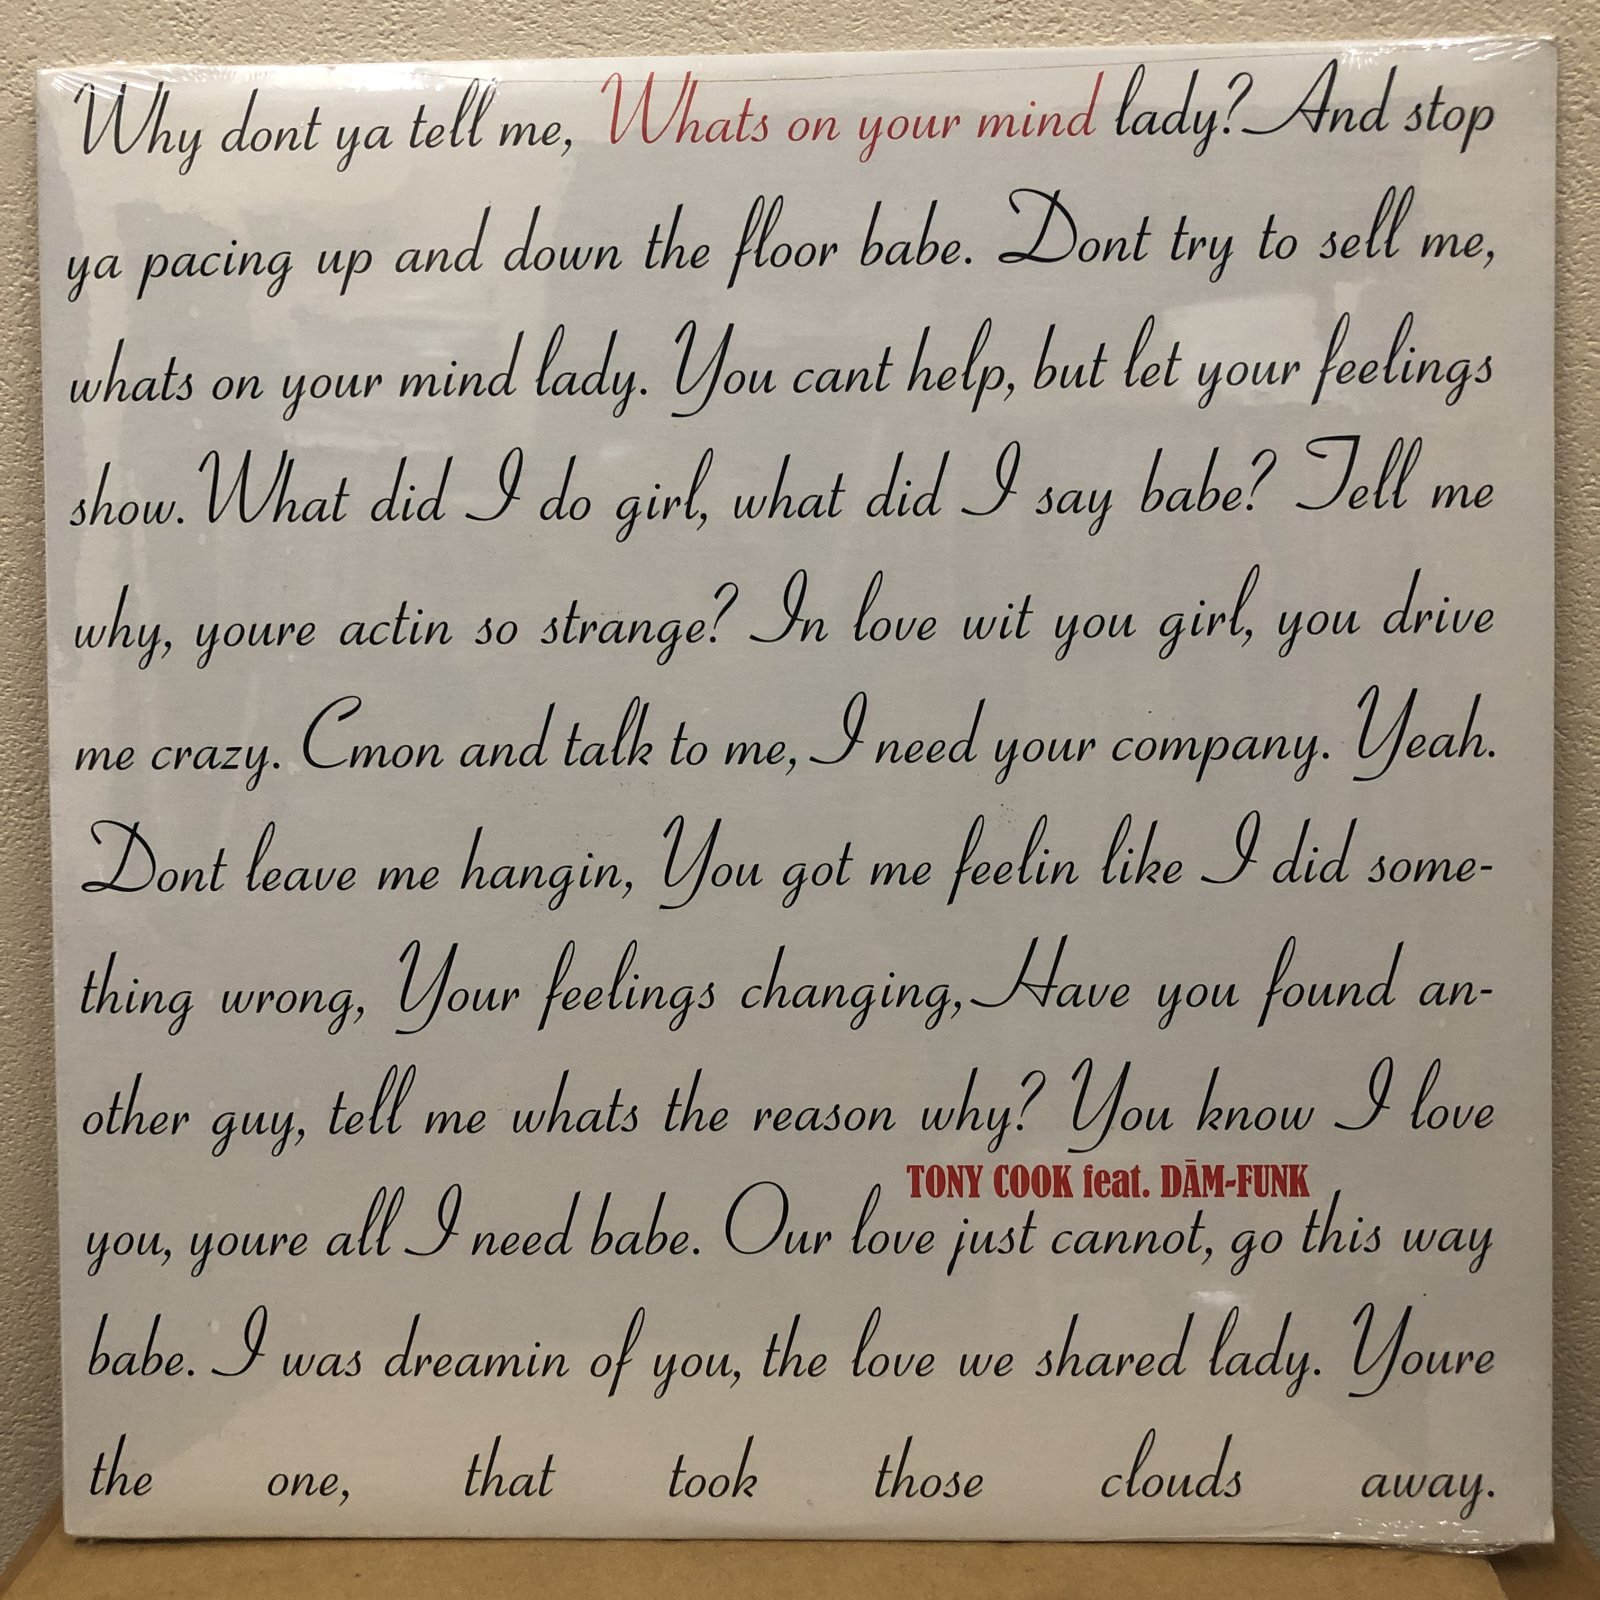 Why dont ya tell me, Whats on your mind lady? And stop
ya pacing up and down the floor babe. Dont try to sell me,
whats on your mind lady. You cant help, but let your feelings
show. What did I do girl, what did I say babe? Tell me
why, youre actin so strange? In love wit you girl, you drive
me crazy. Cmon and talk to me, I need your company. Yeah.
Dont leave me hangin, You got me feelin like I did some-
thing wrong, Your feelings changing, Have you found an-
other guy, tell me whats the reason why? You know I love
TONY COOK feat. DĀM-FUNK
you, youre all I need babe. Our love just cannot, go this way
babe. I was dreamin of you, the love we shared lady. Youre
the one, that took those clouds away.